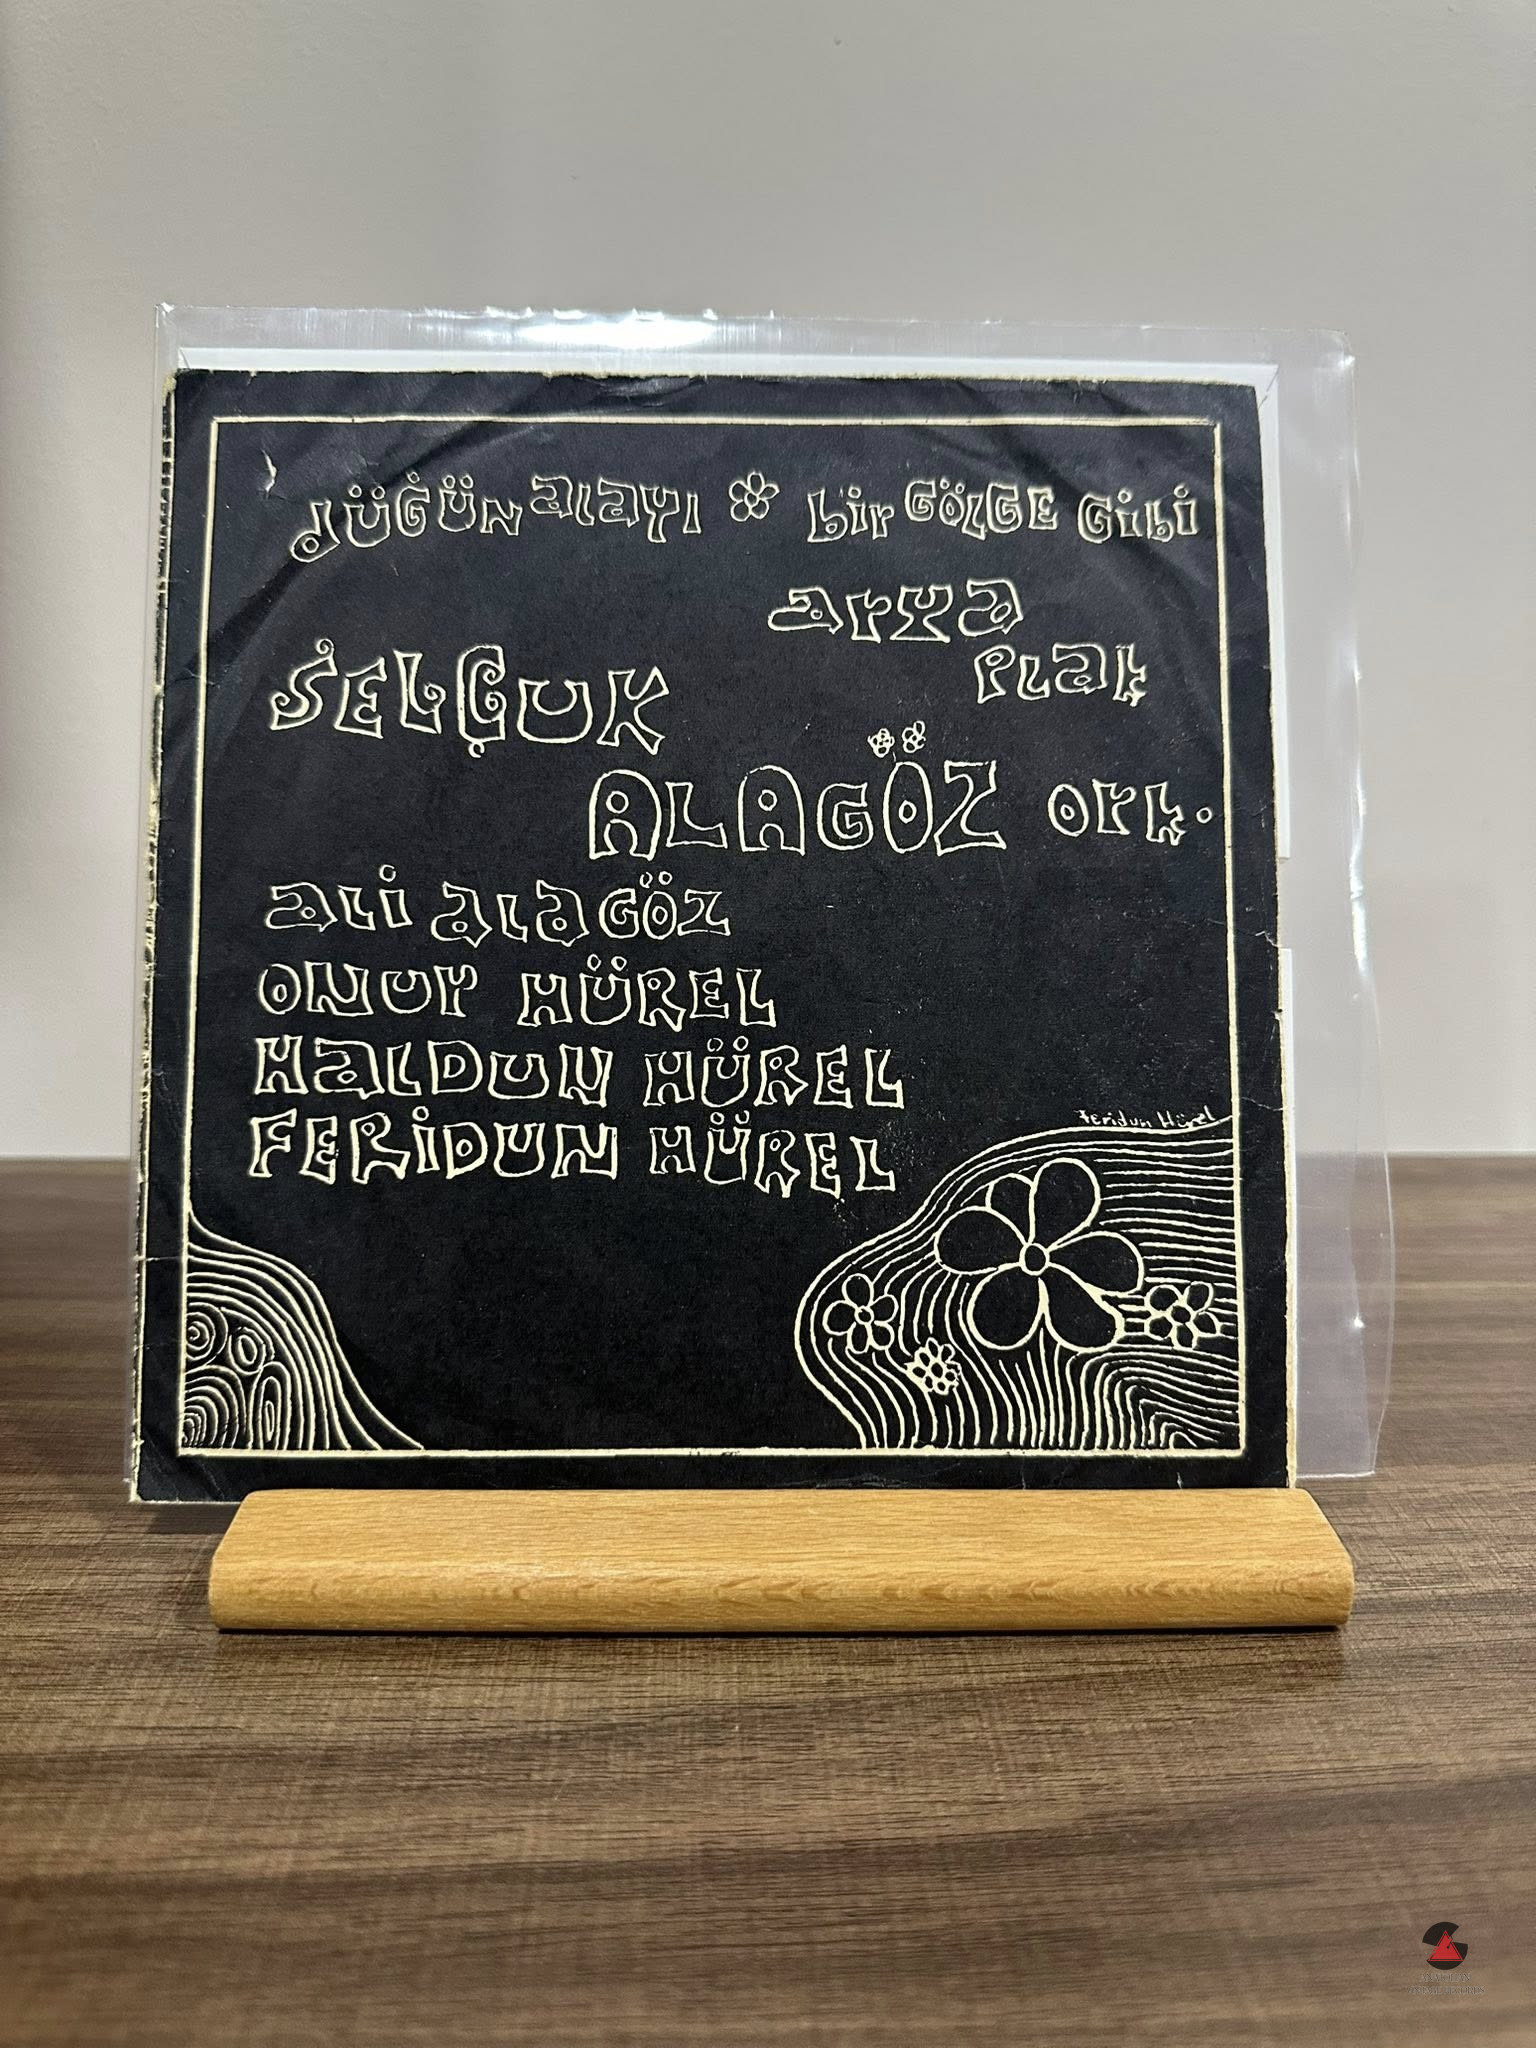 düğün alayı bir GÖLGE Gibi
arya
Plak
SELÇUK
ALAGÖZ ork.
ali alaGÖZ
ONUr HÜREL
HalDUN HÜREL
FERiDUN HÜREL
Feridun Hürel